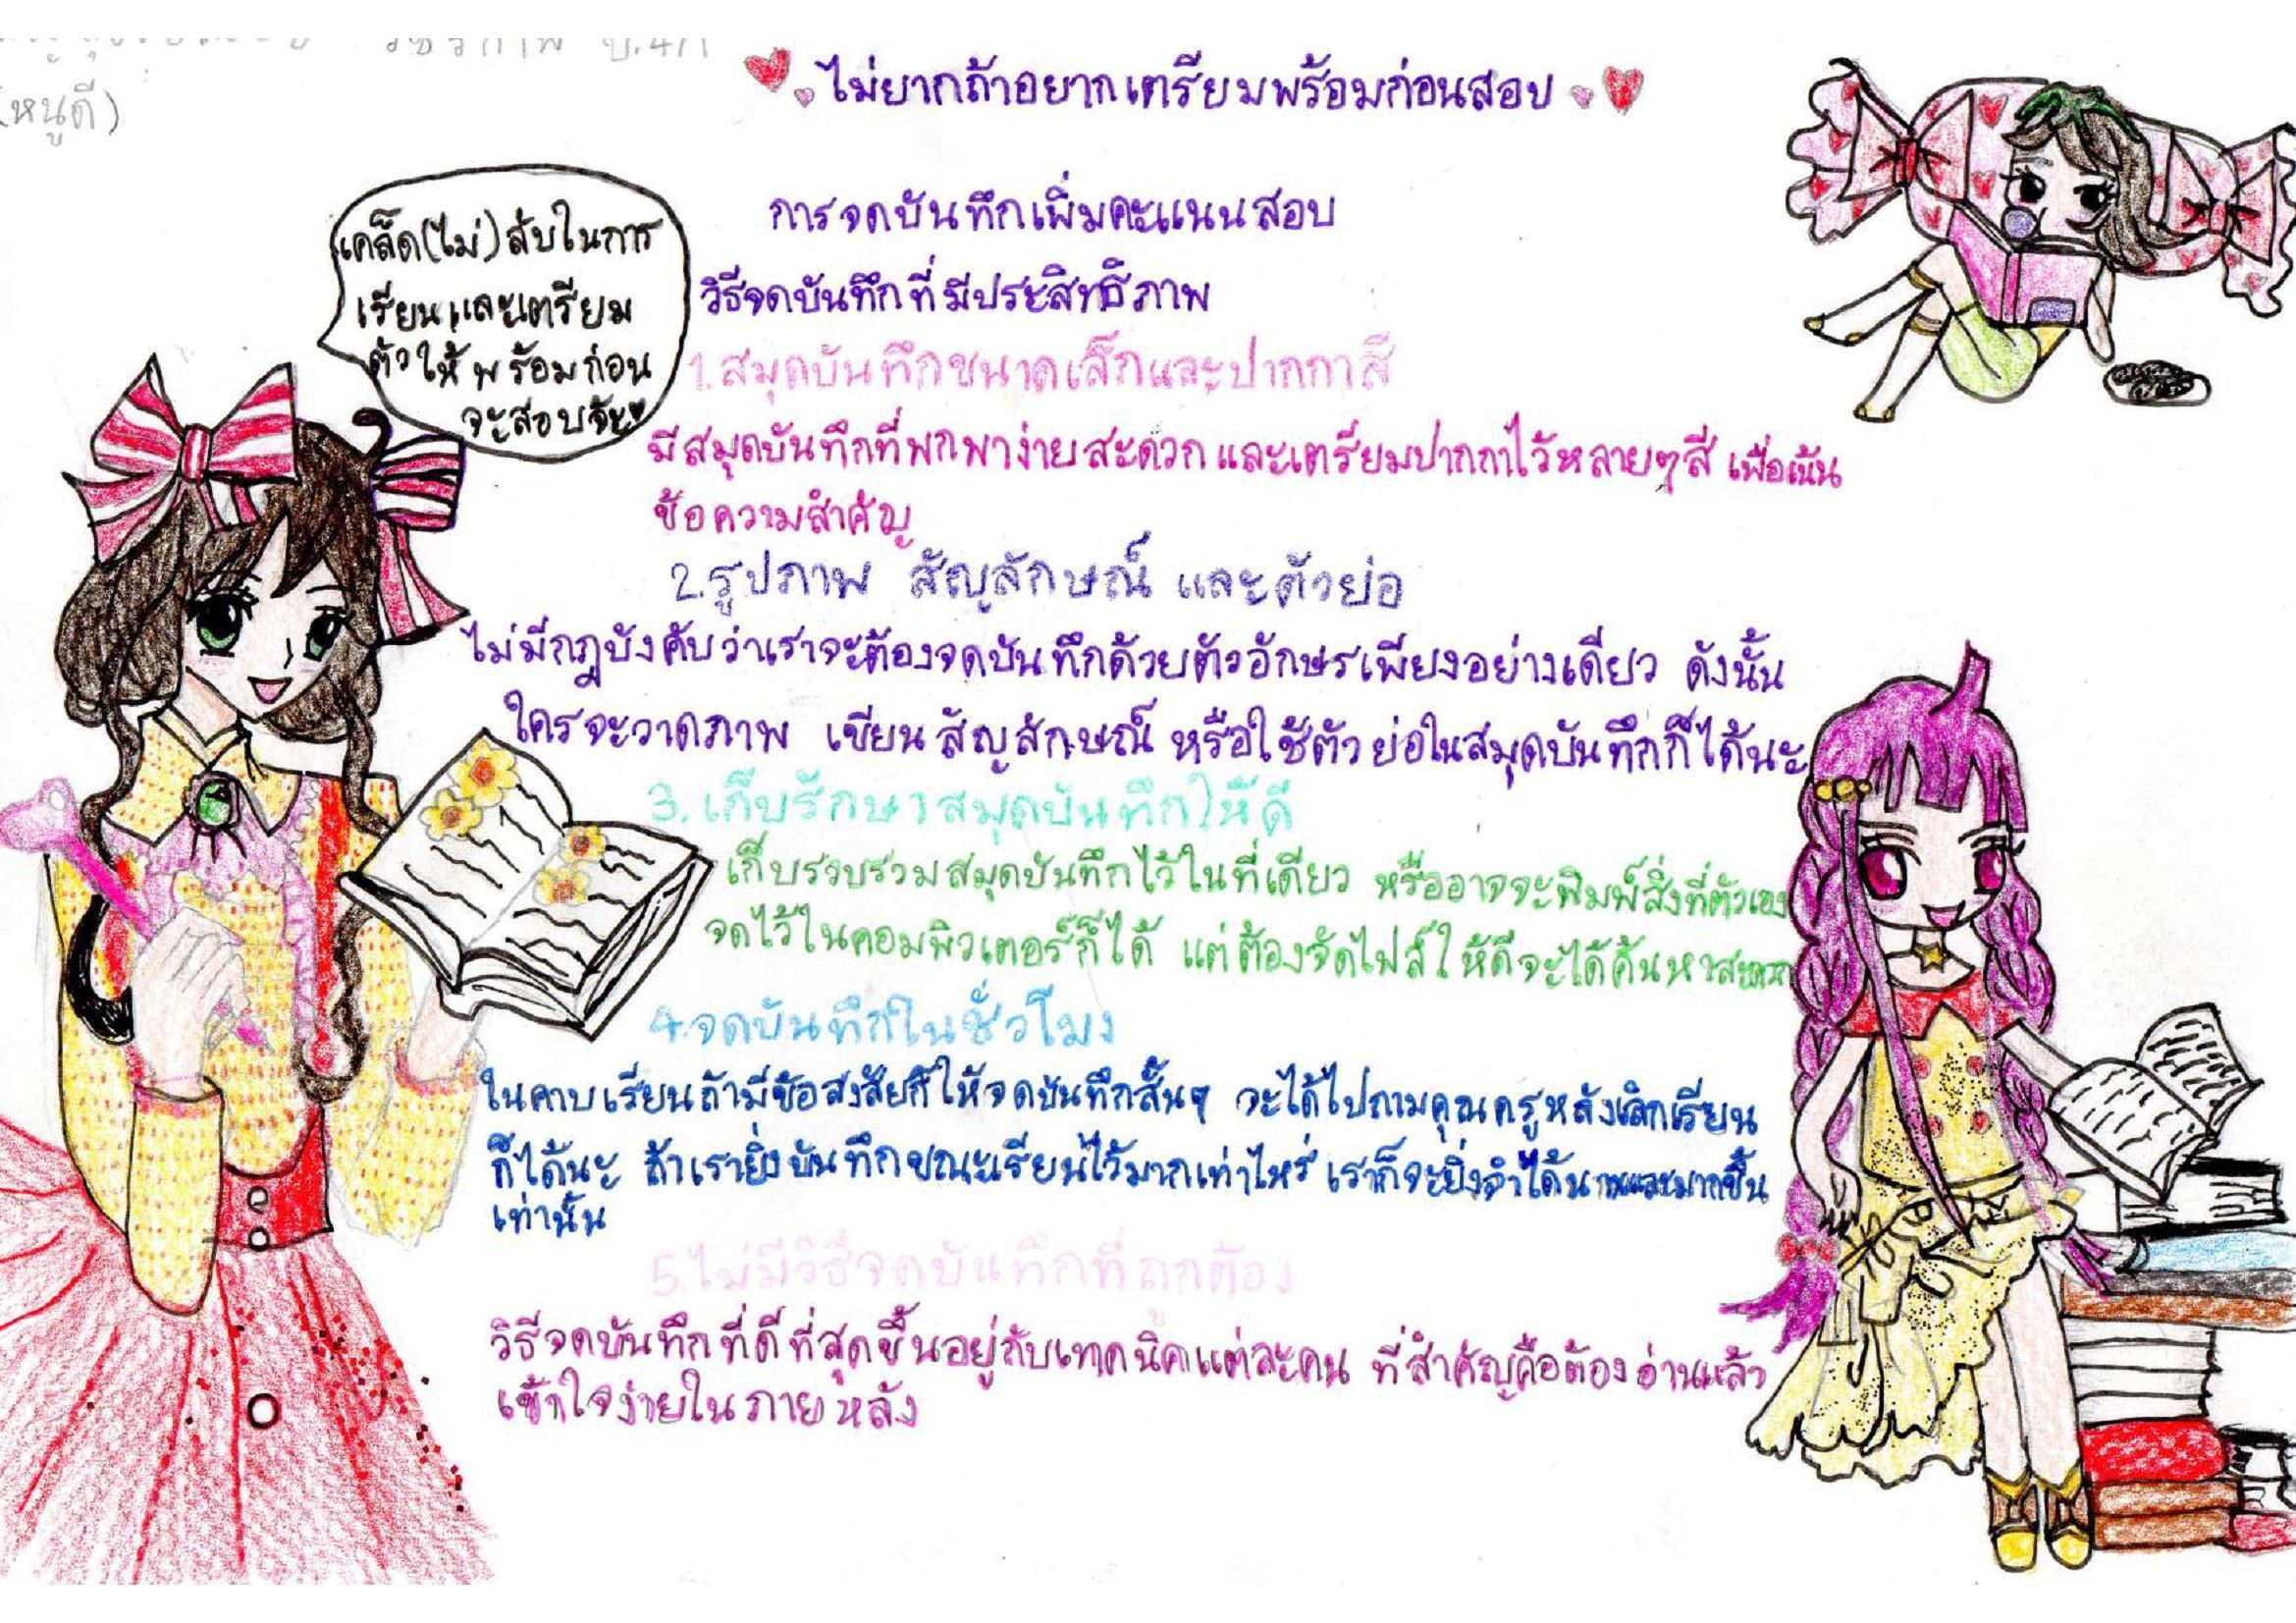 ป.4/1
(หนูดี)
ไม่ยากถ้าอยากเตรียมพร้อมก่อนสอบ
เคล็ด(ไม่)ลับในการ
เรียนและเตรียม
ตัวให้พร้อมก่อน
จะสอบจ้ะ
การจดบันทึกเพิ่มคะแนนสอบ
วิธีจดบันทึกที่มีประสิทธิภาพ
1.สมุดบันทึกขนาดเล็กและปากกาสี
มีสมุดบันทึกที่พกพาง่ายสะดวก และเตรียมปากกาไว้หลายๆสี เพื่อเน้น
ข้อความสำคัญ
2.รูปภาพ สัญลักษณ์ และตัวย่อ
ไม่มีกฎบังคับว่าเราจะต้องจดบันทึกด้วยตัวอักษรเพียงอย่างเดียว ดังนั้น
ใครจะวาดภาพ เขียนสัญลักษณ์ หรือใช้ตัวย่อในสมุดบันทึกก็ได้นะ
3.เก็บรักษาสมุดบันทึกให้ดี
เก็บรวบรวมสมุดบันทึกไว้ในที่เดียว หรืออาจจะพิมพ์สิ่งที่ตัวเอง
จดไว้ในคอมพิวเตอร์ก็ได้ แต่ต้องจัดไฟล์ให้ดีจะได้ค้นหาสะดวก
4.จดบันทึกในชั่วโมง
ในคาบเรียนถ้ามีข้อสงสัยก็ให้จดบันทึกสั้นๆ จะได้ไปถามคุณครูหลังเลิกเรียน
ก็ได้นะ ถ้าเรายิ่งบันทึกขณะเรียนไว้มากเท่าไหร่ เราก็จะยิ่งจำได้นานและมากขึ้น
เท่านั้น
5.ไม่มีวิธีจดบันทึกที่ถูกต้อง
วิธีจดบันทึกที่ดีที่สุดขึ้นอยู่กับเทคนิคแต่ละคน ที่สำคัญคือต้องอ่านแล้ว
เข้าใจง่ายในภายหลัง